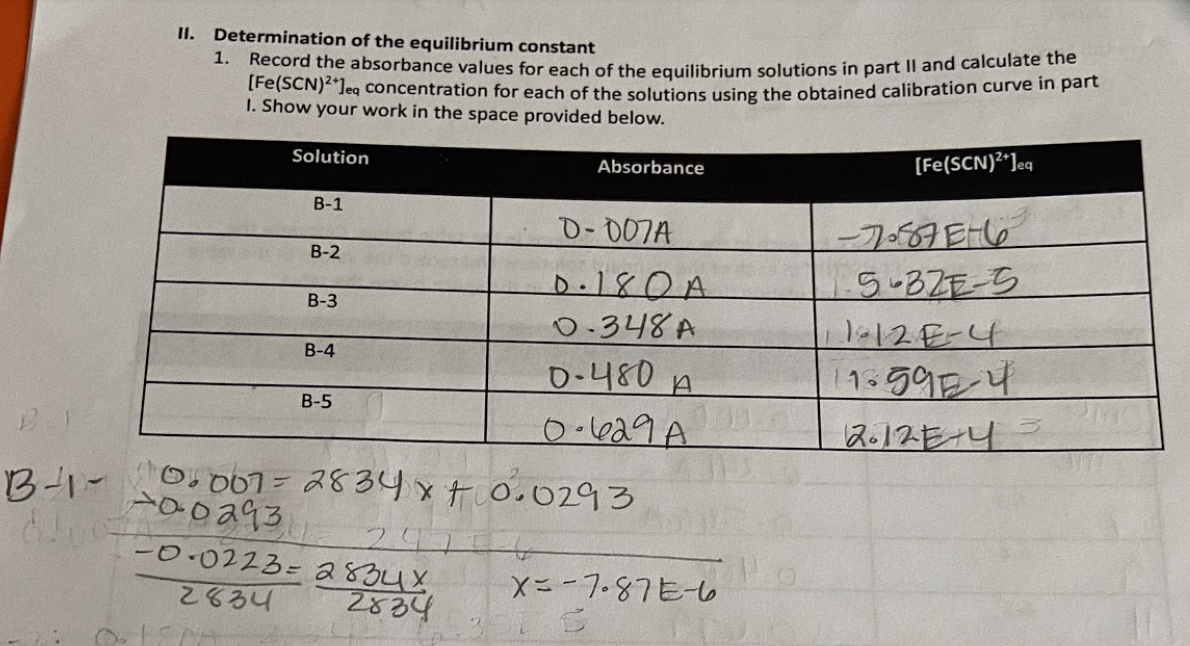 II. Determination of the equilibrium constant
1. Record the absorbance values for each of the equilibrium solutions in part II and calculate the
[Fe(SCN)²⁺]eq concentration for each of the solutions using the obtained calibration curve in part
I. Show your work in the space provided below.
Solution Absorbance [Fe(SCN)²⁺]eq
B-1 0.007A -7.87E-6
B-2 0.180A 5.32E-5
B-3 0.348A 1.12E-4
B-4 0.480 A 1.59E-4
B-5 0.629A 2.12E-4
B-1- 0.007 = 2834x + 0.0293
-0.0293
-0.0223 = 2834x x = -7.87E-6
2834 2834